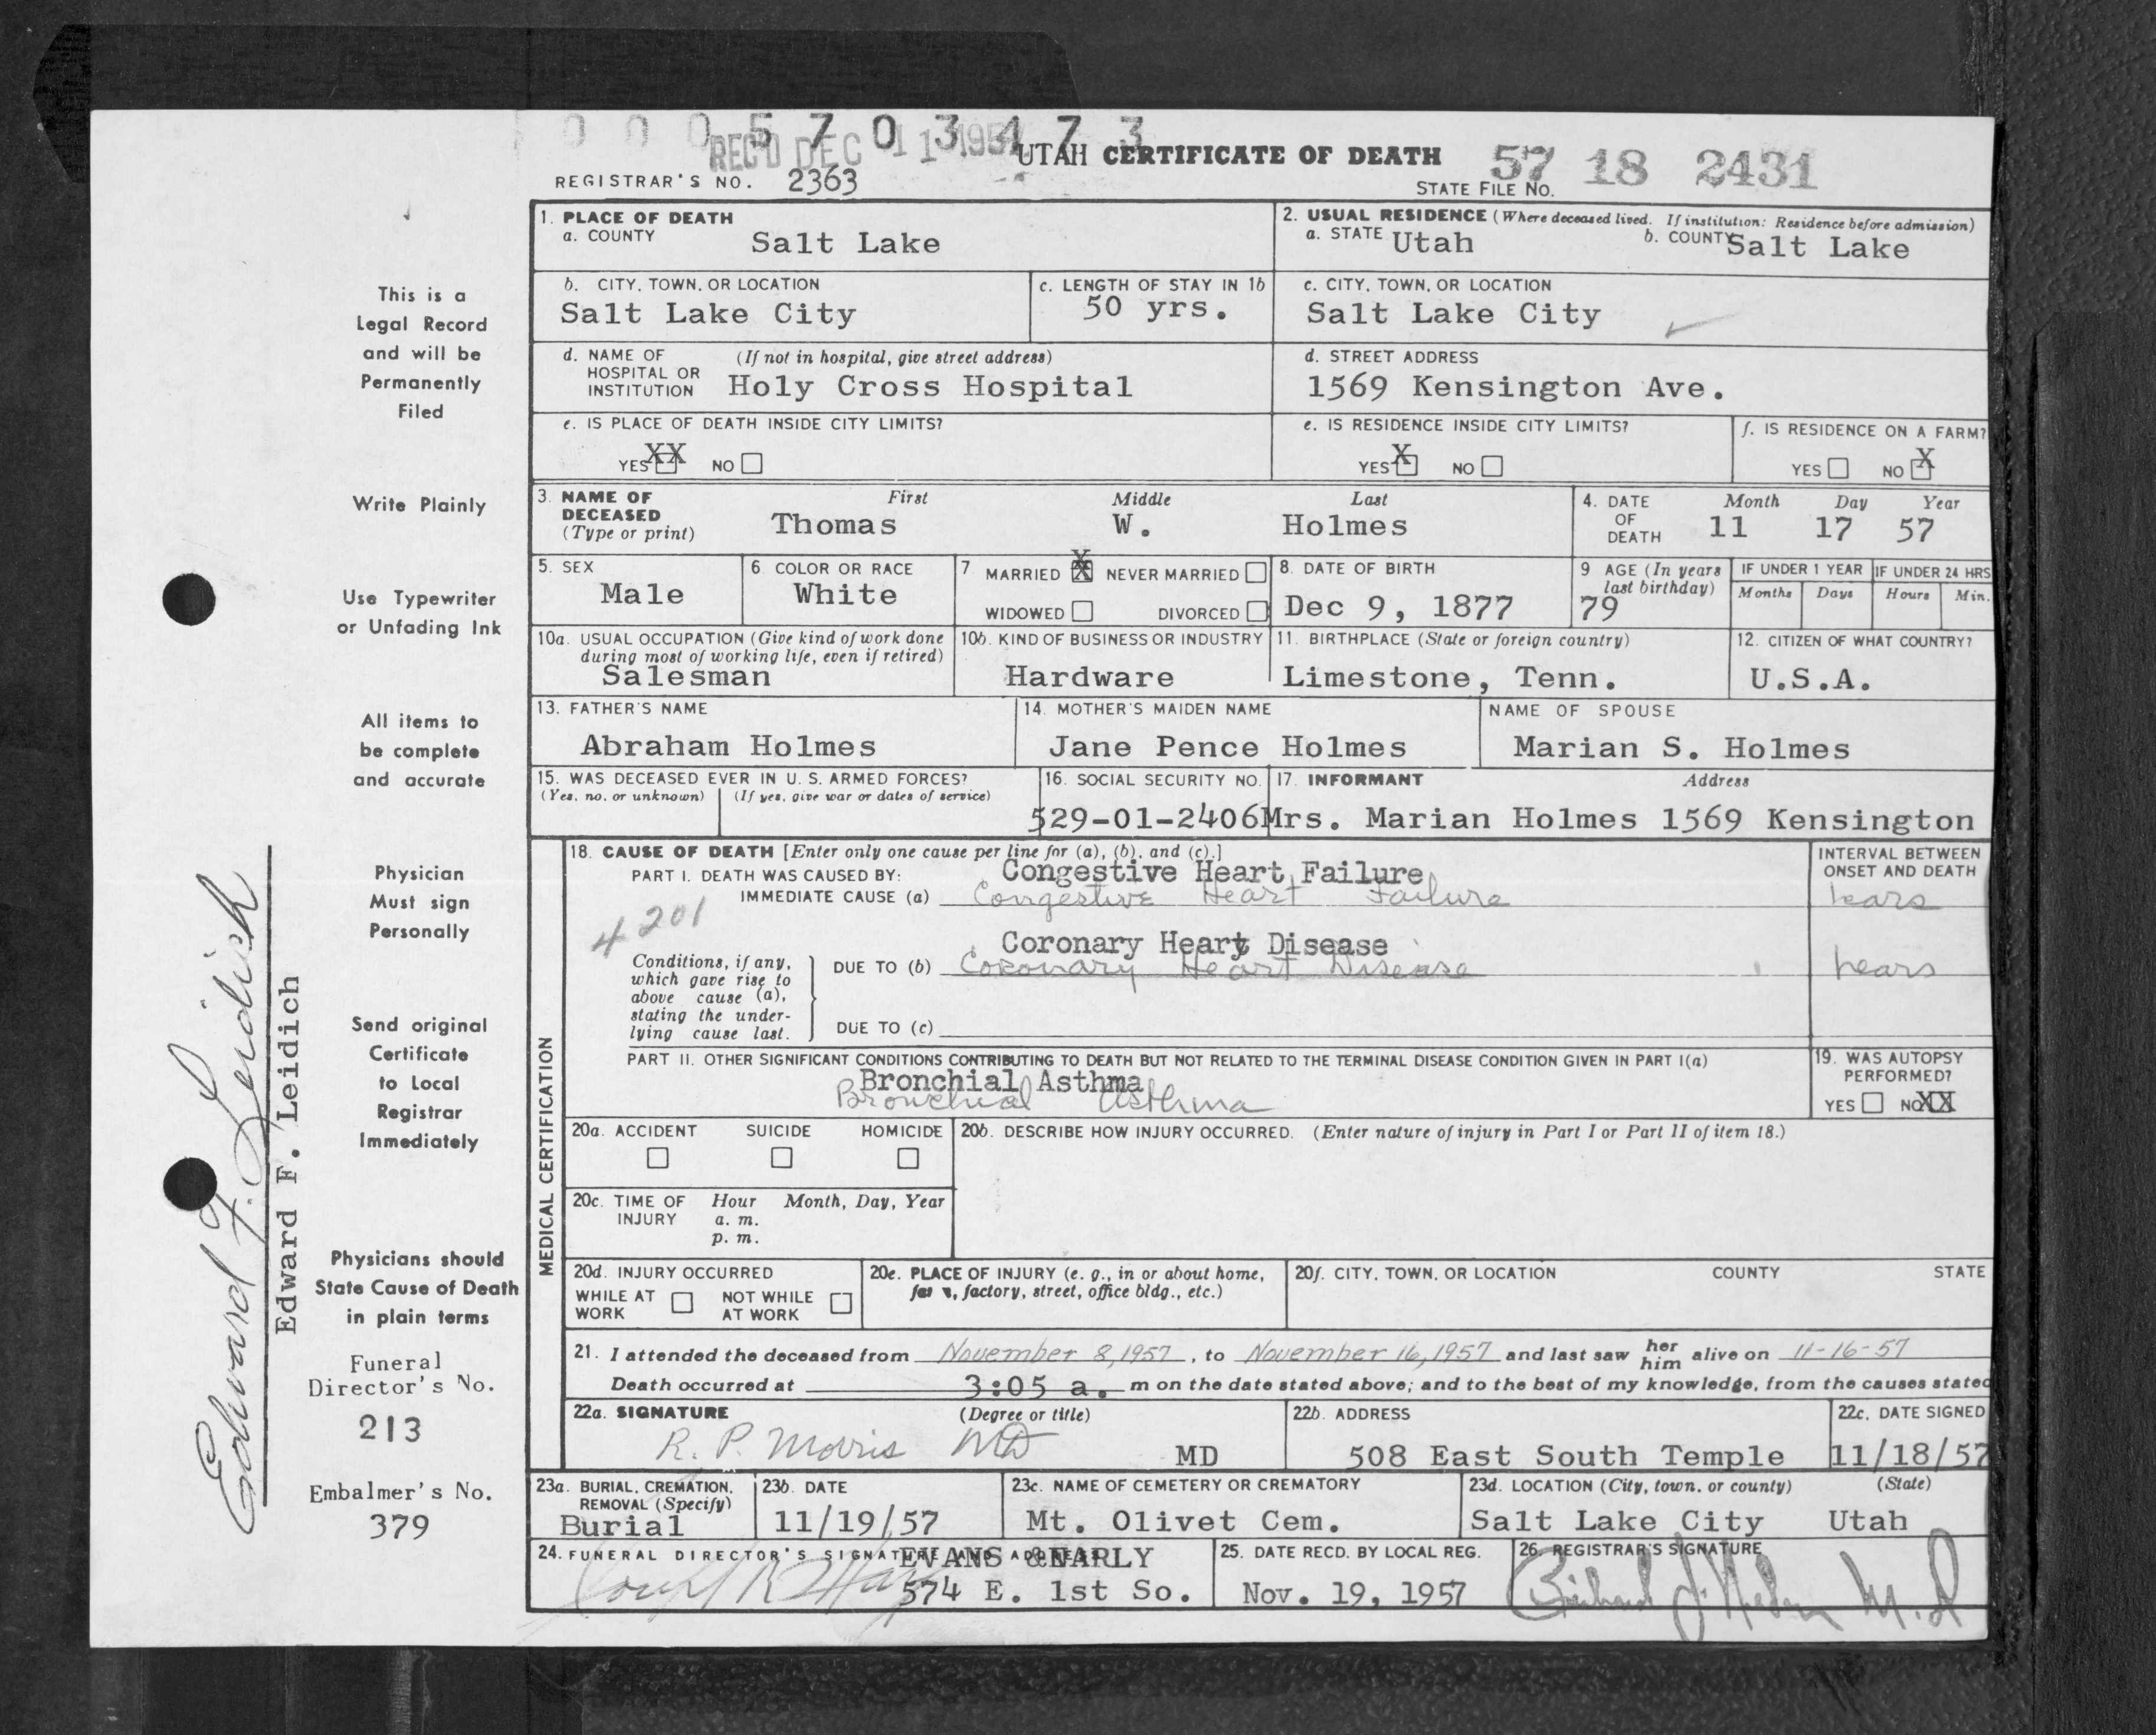 0 0 0 5 7 0 3 4 7 3
REC'D DEC 11 1957
UTAH CERTIFICATE OF DEATH
57 18 2431
REGISTRAR'S NO. 2363
STATE FILE NO.
1. PLACE OF DEATH
a. COUNTY Salt Lake
2. USUAL RESIDENCE (Where deceased lived. If institution: Residence before admission)
a. STATE Utah b. COUNTY Salt Lake
b. CITY, TOWN, OR LOCATION
Salt Lake City
c. LENGTH OF STAY IN 1b
50 yrs.
c. CITY, TOWN, OR LOCATION
Salt Lake City
d. NAME OF HOSPITAL OR INSTITUTION (If not in hospital, give street address)
Holy Cross Hospital
d. STREET ADDRESS
1569 Kensington Ave.
e. IS PLACE OF DEATH INSIDE CITY LIMITS?
YES XX NO
e. IS RESIDENCE INSIDE CITY LIMITS?
YES X NO
f. IS RESIDENCE ON A FARM?
YES NO X
3. NAME OF DECEASED (Type or print)
First Middle Last
Thomas W. Holmes
4. DATE OF DEATH
Month Day Year
11 17 57
5. SEX
Male
6. COLOR OR RACE
White
7 MARRIED X NEVER MARRIED
WIDOWED DIVORCED
8. DATE OF BIRTH
Dec 9, 1877
9 AGE (In years last birthday)
79
IF UNDER 1 YEAR
Months Days
IF UNDER 24 HRS
Hours Min.
10a. USUAL OCCUPATION (Give kind of work done during most of working life, even if retired)
Salesman
10b. KIND OF BUSINESS OR INDUSTRY
Hardware
11. BIRTHPLACE (State or foreign country)
Limestone, Tenn.
12. CITIZEN OF WHAT COUNTRY?
U.S.A.
13. FATHER'S NAME
Abraham Holmes
14. MOTHER'S MAIDEN NAME
Jane Pence Holmes
NAME OF SPOUSE
Marian S. Holmes
15. WAS DECEASED EVER IN U. S. ARMED FORCES?
(Yes, no, or unknown) (If yes, give war or dates of service)
16. SOCIAL SECURITY NO.
529-01-2406
17. INFORMANT Address
Mrs. Marian Holmes 1569 Kensington
MEDICAL CERTIFICATION
18. CAUSE OF DEATH [Enter only one cause per line for (a), (b), and (c).]
PART I. DEATH WAS CAUSED BY:
Congestive Heart Failure
IMMEDIATE CAUSE (a) Congestive Heart Failure
4201
Coronary Heart Disease
DUE TO (b) Coronary Heart Disease
Conditions, if any, which gave rise to above cause (a), stating the underlying cause last.
DUE TO (c)
INTERVAL BETWEEN ONSET AND DEATH
years
years
PART II. OTHER SIGNIFICANT CONDITIONS CONTRIBUTING TO DEATH BUT NOT RELATED TO THE TERMINAL DISEASE CONDITION GIVEN IN PART I(a)
Bronchial Asthma
Bronchial Asthma
19. WAS AUTOPSY PERFORMED?
YES NO XX
20a. ACCIDENT SUICIDE HOMICIDE
20b. DESCRIBE HOW INJURY OCCURRED. (Enter nature of injury in Part I or Part II of item 18.)
20c. TIME OF INJURY Hour Month, Day, Year
a. m.
p. m.
20d. INJURY OCCURRED
WHILE AT WORK NOT WHILE AT WORK
20e. PLACE OF INJURY (e. g., in or about home, farm, factory, street, office bldg., etc.)
20f. CITY, TOWN, OR LOCATION COUNTY STATE
21. I attended the deceased from November 8, 1957, to November 16, 1957 and last saw her him alive on 11-16-57
Death occurred at 3:05 a. m on the date stated above; and to the best of my knowledge, from the causes stated
22a. SIGNATURE (Degree or title)
R. P. Morris MD MD
22b. ADDRESS
508 East South Temple
22c. DATE SIGNED
11/18/57
23a. BURIAL, CREMATION, REMOVAL (Specify)
Burial
23b. DATE
11/19/57
23c. NAME OF CEMETERY OR CREMATORY
Mt. Olivet Cem.
23d. LOCATION (City, town, or county) (State)
Salt Lake City Utah
24. FUNERAL DIRECTOR'S SIGNATURE AND ADDRESS
EVANS & EARLY
574 E. 1st So.
25. DATE RECD. BY LOCAL REG.
Nov. 19, 1957
26. REGISTRAR'S SIGNATURE
M.D
This is a
Legal Record
and will be
Permanently
Filed
Write Plainly
Use Typewriter
or Unfading Ink
All items to
be complete
and accurate
Physician
Must sign
Personally
Send original
Certificate
to Local
Registrar
Immediately
Physicians should
State Cause of Death
in plain terms
Funeral
Director's No.
213
Embalmer's No.
379
Edward F. Leidich
Edward F. Leidich